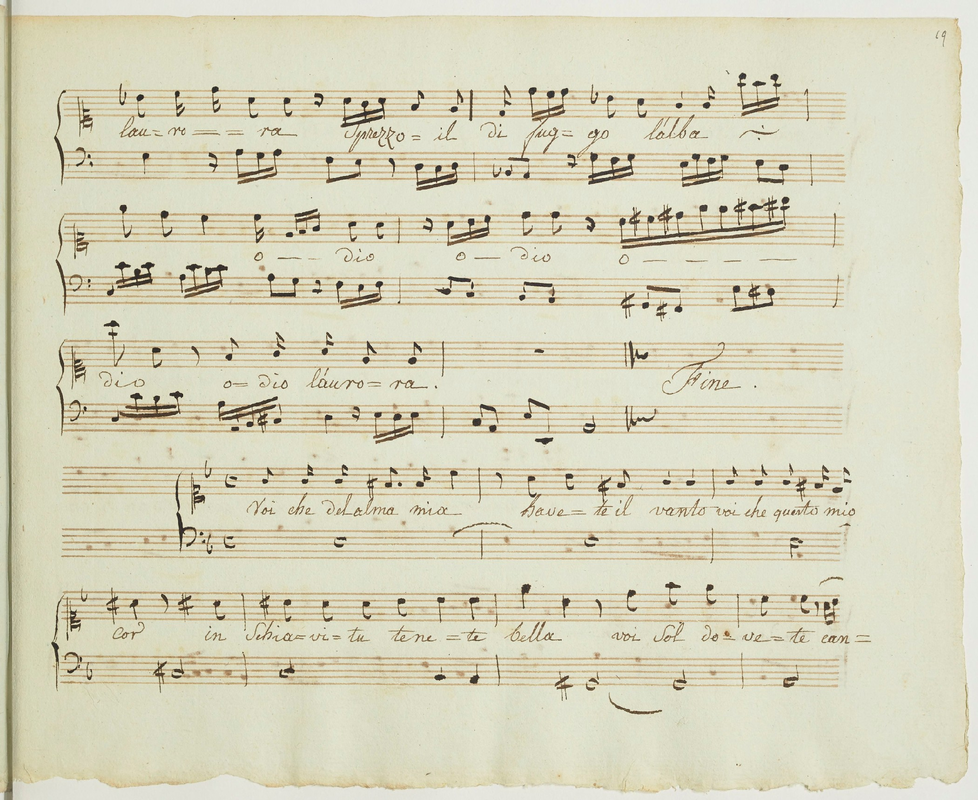 19
lau=ro — — = ra Sprezzo = il di fug= go l'alba
o — — dio o — dio o — — — —
dio o= dio láuro= ra.
Fine.
Voi che del alma mia Have= te il vanto voi che questo mio
cor in Schia=vi=tu tene=te bella voi sol do=ve=te can=